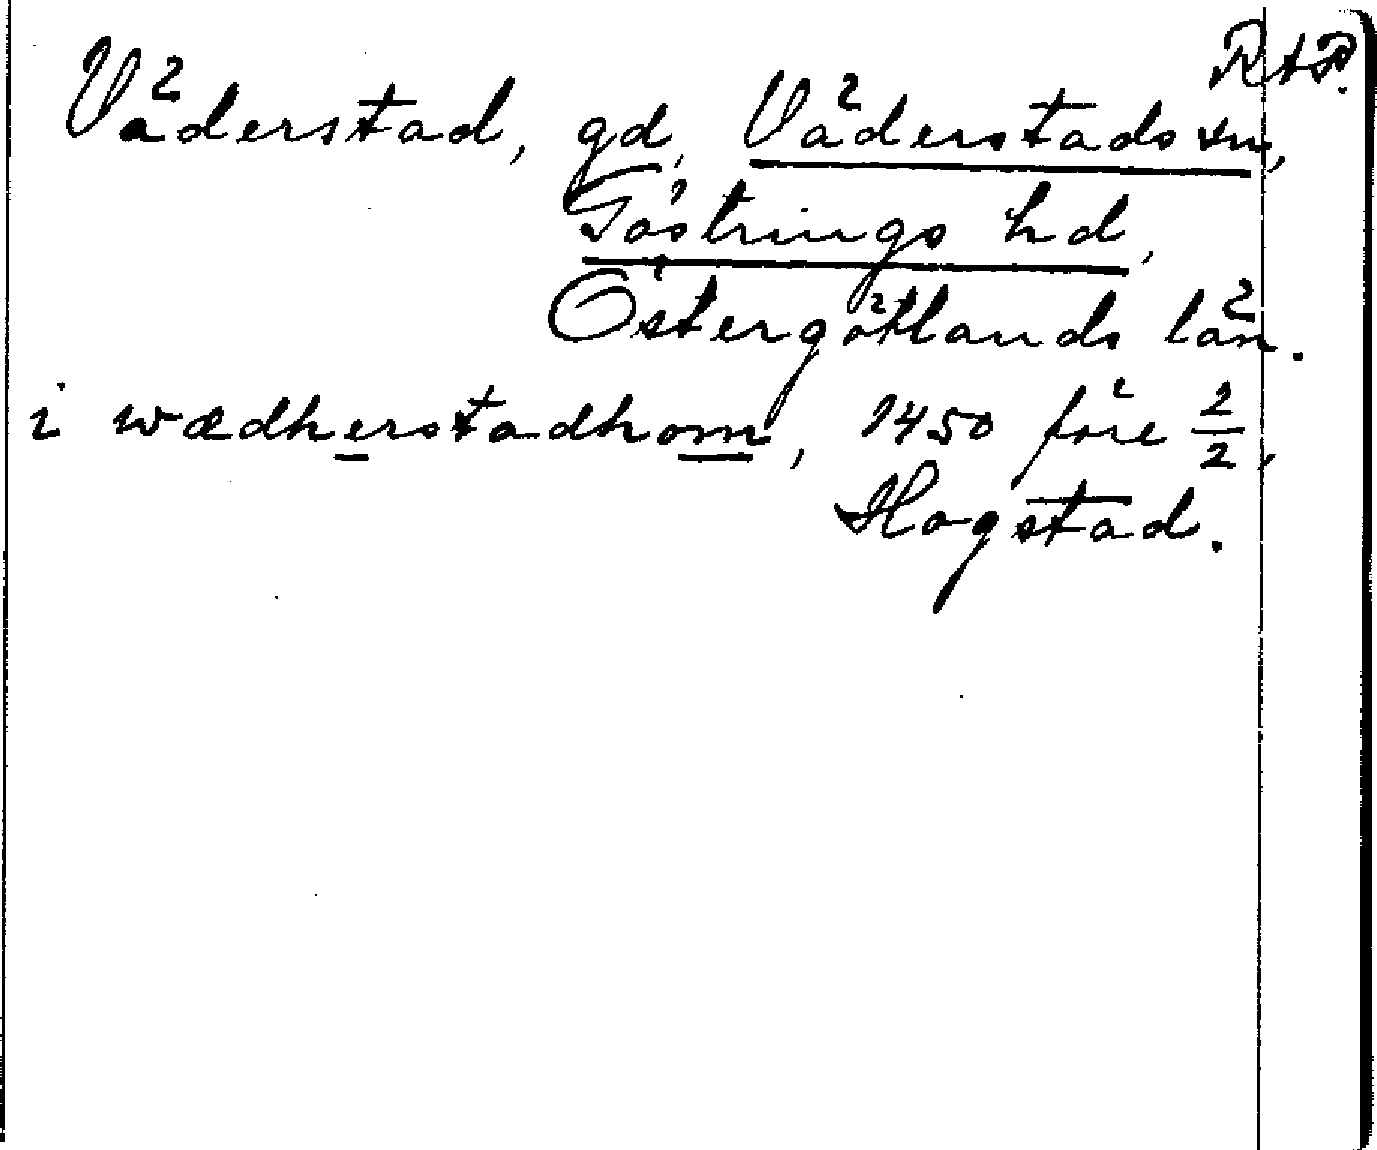 RAP.
Väderstad, gd, Väderstads sn,
Göstrings hd,
Östergötlands län.
i wædherstadhom, 1450 före 2/2,
Hogstad.